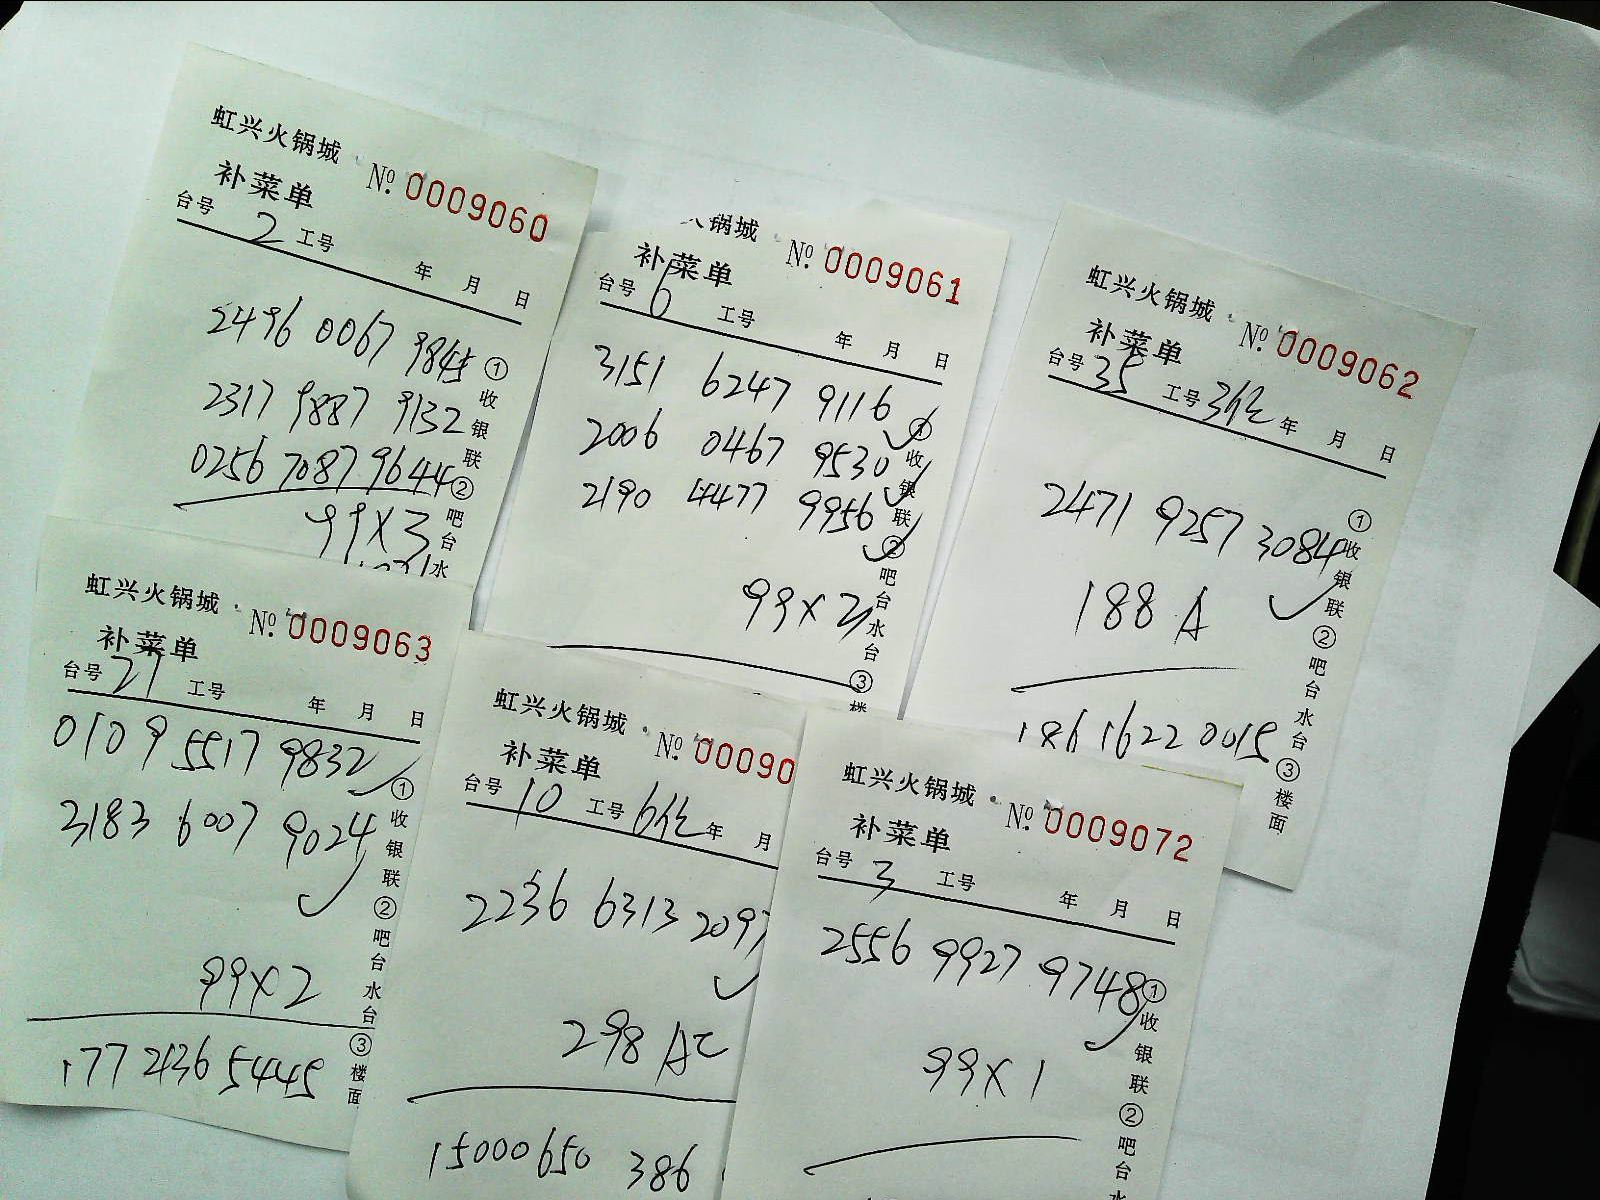 虹兴火锅城
补菜单 № 0009060
台号 2 工号 年 月 日
2496 0067 9845
2317 9887 9132
0256 7087 9644
99×3
①收银联②吧台水
火锅城
补菜单 № 0009061
台号 6 工号 年 月 日
3151 6247 9116
2006 0467 9530
2190 4477 9956
99×2
①收银联②吧台水台③楼
虹兴火锅城
补菜单 № 0009062
台号 35 工号 3位 年 月 日
2471 9257 3084
188 A
186 1622 0015
①收银联②吧台水台③楼面
虹兴火锅城
补菜单 № 0009063
台号 21 工号 年 月 日
0109 5517 9832
3183 6007 9024
99×2
177 2136 5445
①收银联②吧台水台③楼面
虹兴火锅城
补菜单 № 00090
台号 10 工号 6位 年 月
2236 6313 2097
298 A
15000650 386
虹兴火锅城
补菜单 № 0009072
台号 3 工号 年 月 日
2556 9927 9748
99×1
①收银联②吧台水